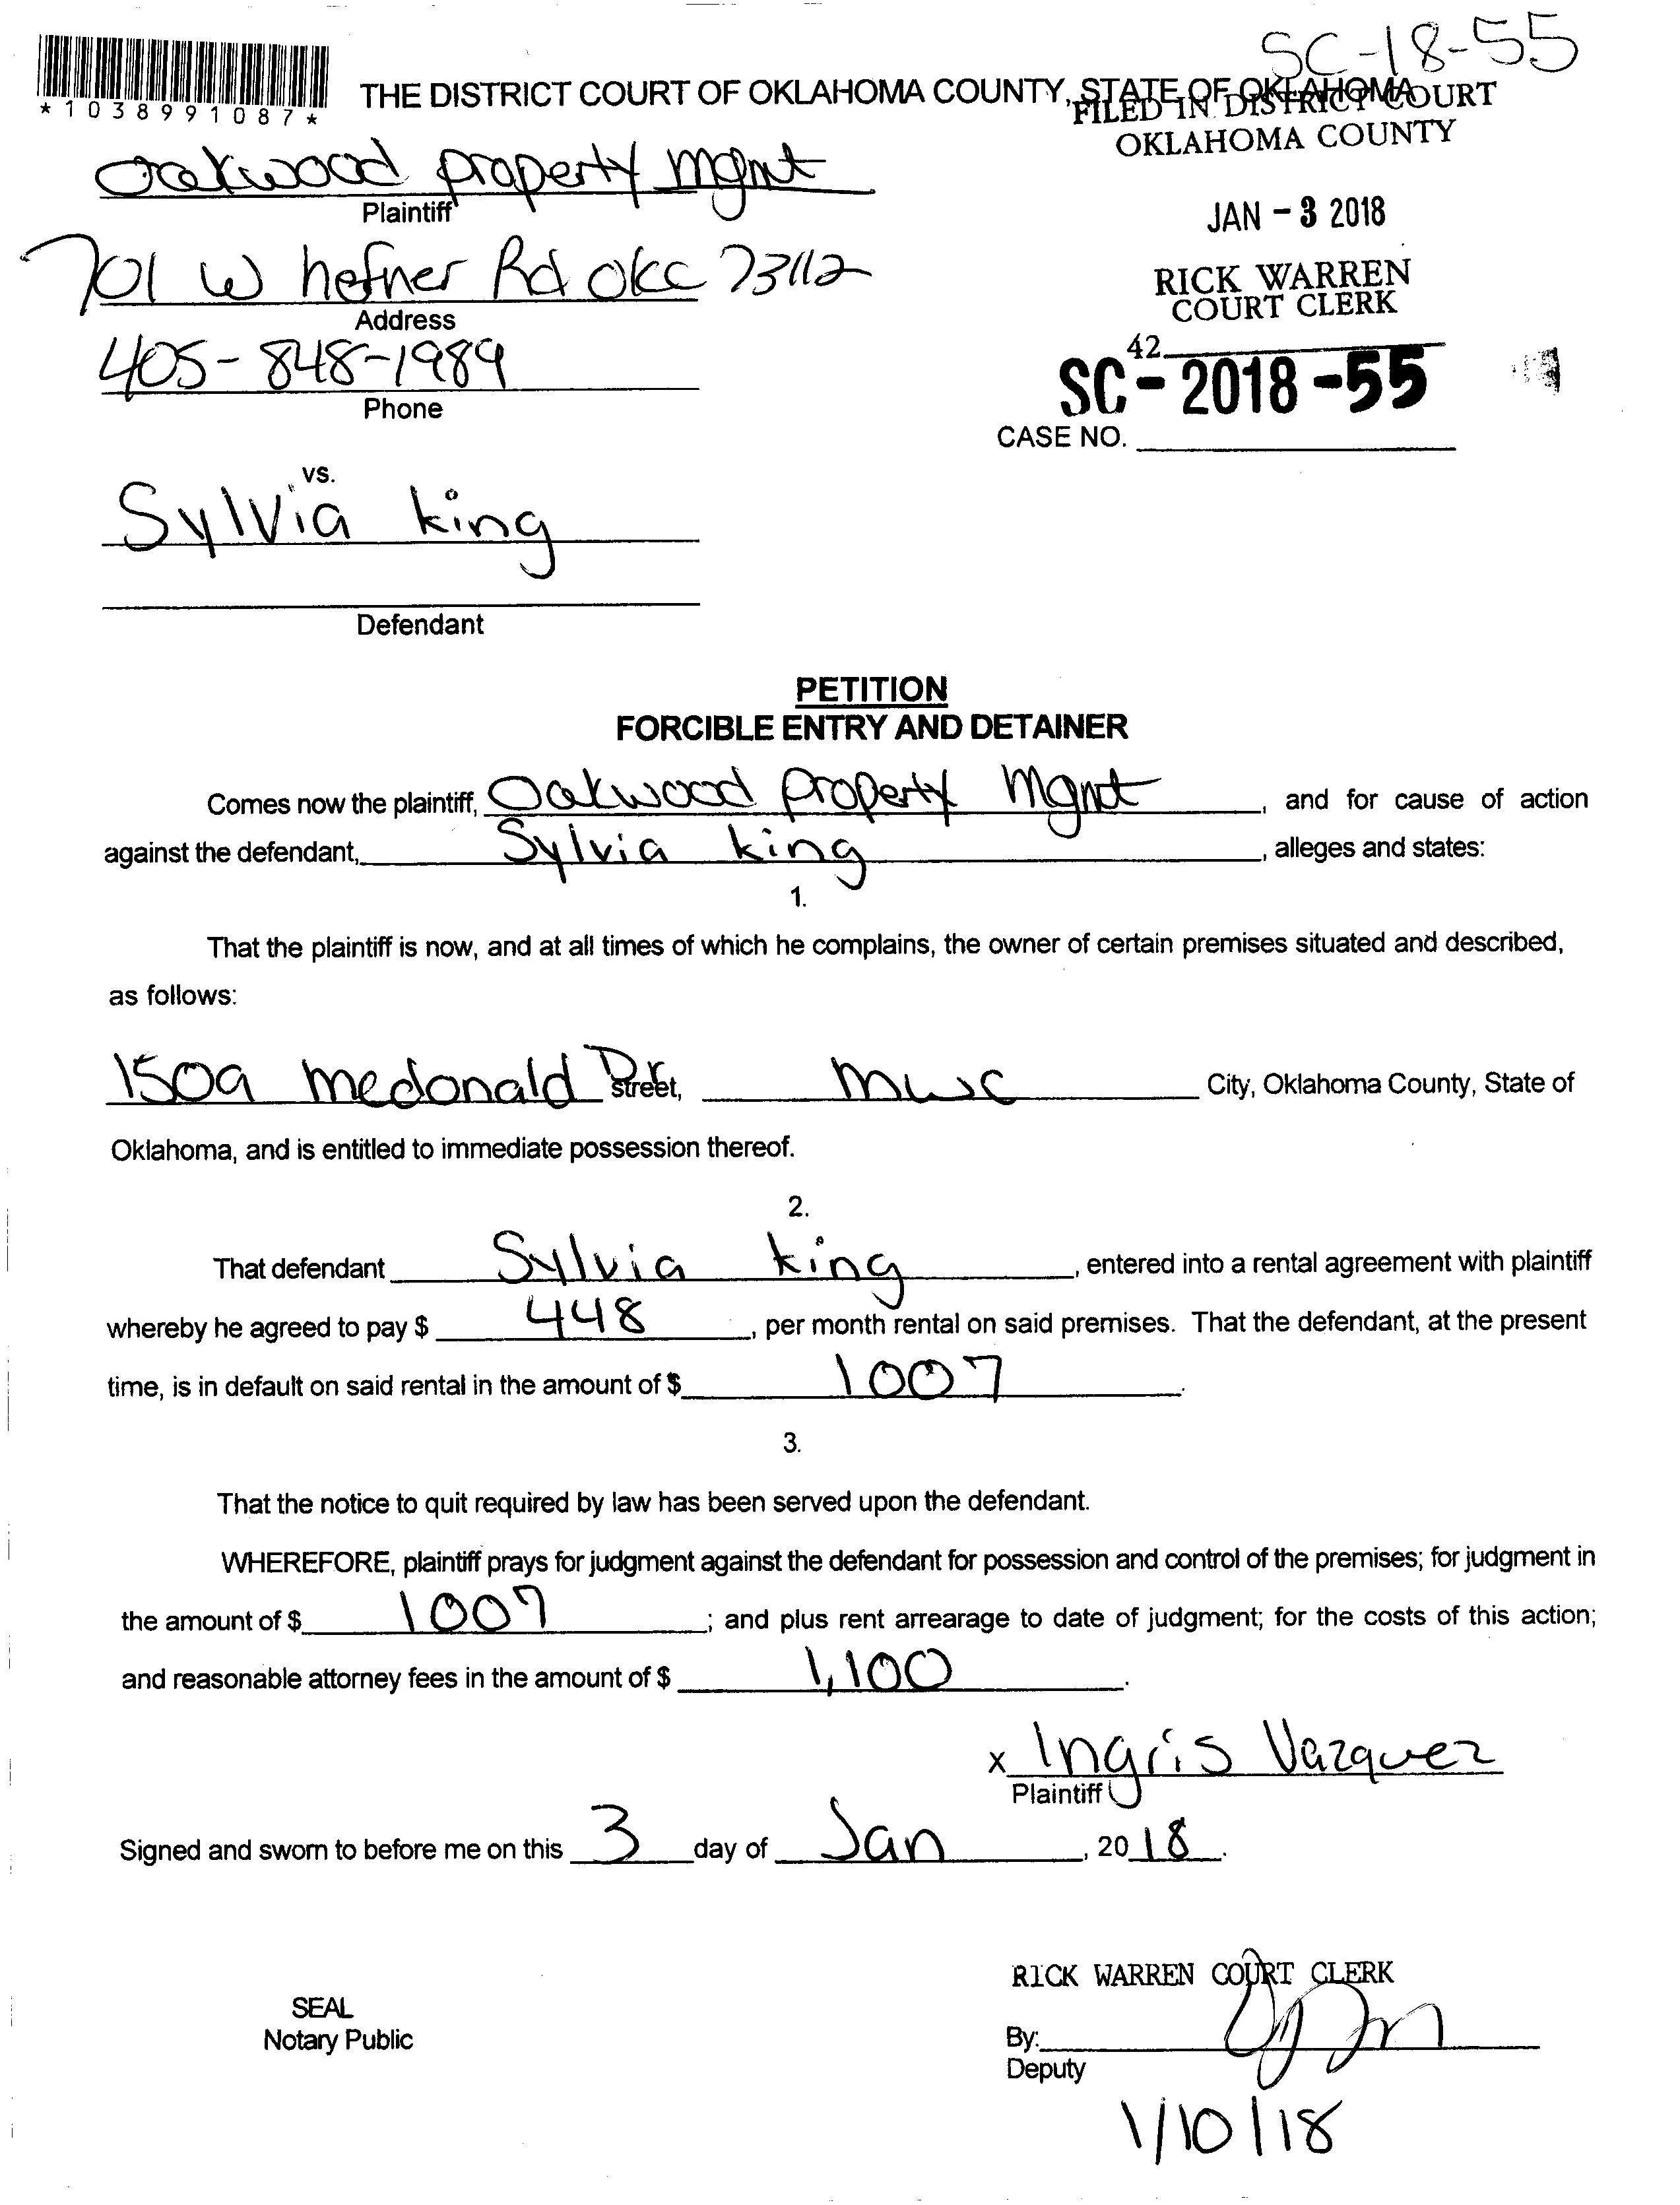 SC-18-55
*1038991087*
THE DISTRICT COURT OF OKLAHOMA COUNTY, STATE OF OKLAHOMA
FILED IN DISTRICT COURT
OKLAHOMA COUNTY
Oakwood property mgmt
Plaintiff
JAN - 3 2018
701 W hefner Rd okc 73112
Address
RICK WARREN
COURT CLERK
405-848-1989
Phone
42
SC-2018-55
CASE NO.
vs.
Sylvia king
Defendant
PETITION
FORCIBLE ENTRY AND DETAINER
Comes now the plaintiff, Oakwood property Mgmt, and for cause of action
against the defendant, Sylvia king, alleges and states:
1.
That the plaintiff is now, and at all times of which he complains, the owner of certain premises situated and described,
as follows:
1509 mcdonald Dr Street, mwc City, Oklahoma County, State of
Oklahoma, and is entitled to immediate possession thereof.
2.
That defendant Sylvia king, entered into a rental agreement with plaintiff
whereby he agreed to pay $ 448, per month rental on said premises. That the defendant, at the present
time, is in default on said rental in the amount of $ 1007.
3.
That the notice to quit required by law has been served upon the defendant.
WHEREFORE, plaintiff prays for judgment against the defendant for possession and control of the premises; for judgment in
the amount of $ 1007; and plus rent arrearage to date of judgment; for the costs of this action;
and reasonable attorney fees in the amount of $ 1,100.
x Ingris Vazquez
Plaintiff
Signed and sworn to before me on this 3 day of Jan, 2018.
RICK WARREN COURT CLERK
SEAL
Notary Public
By:
Deputy
1/10/18